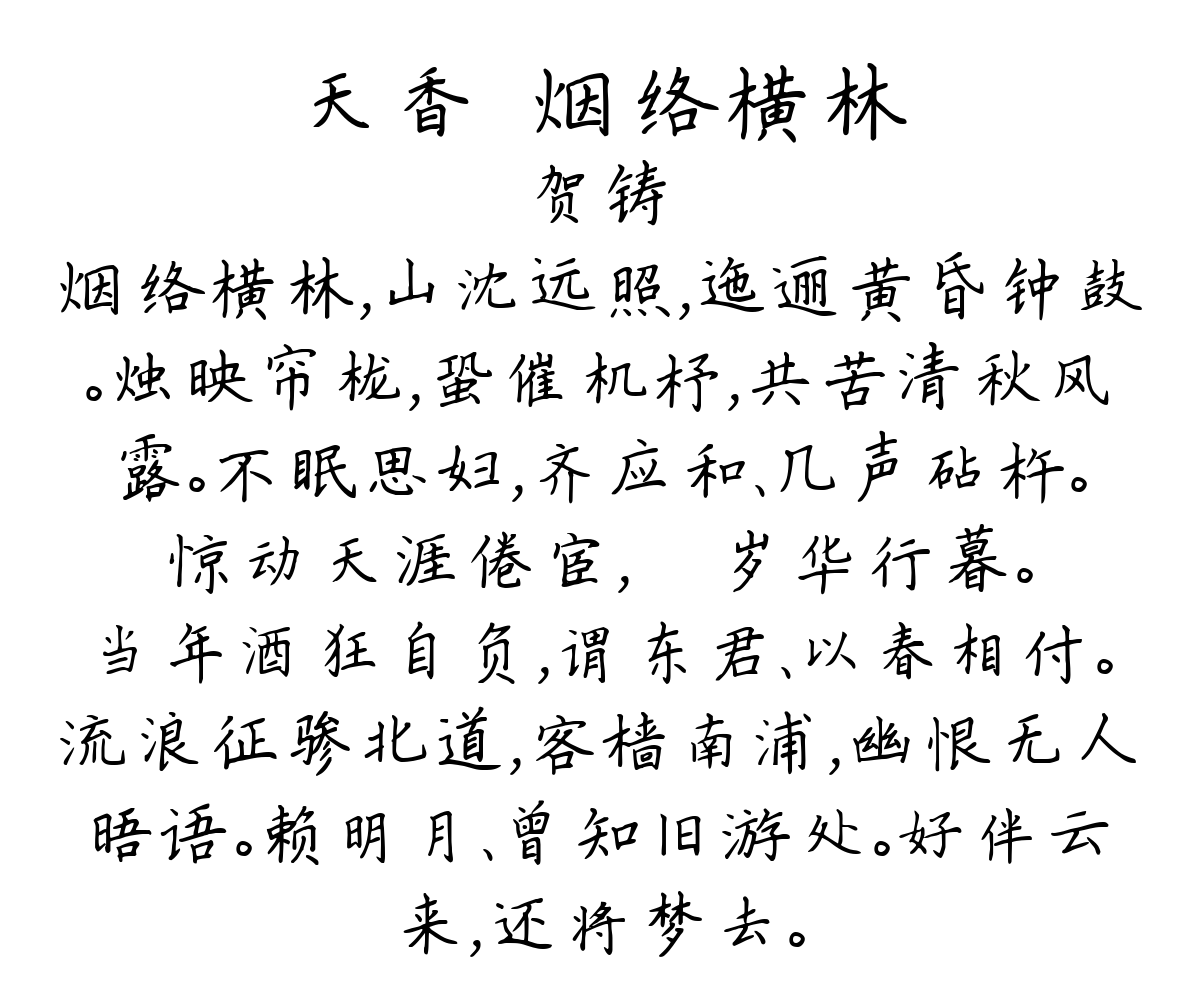 天香 烟络横林
贺铸
烟络横林,山沈远照,迤逦黄昏钟鼓
。烛映帘栊,蛩催机杼,共苦清秋风
露。不眠思妇,齐应和、几声砧杵。
惊动天涯倦宦, 岁华行暮。
当年酒狂自负,谓东君、以春相付。
流浪征骖北道,客樯南浦,幽恨无人
晤语。赖明月、曾知旧游处。好伴云
来,还将梦去。